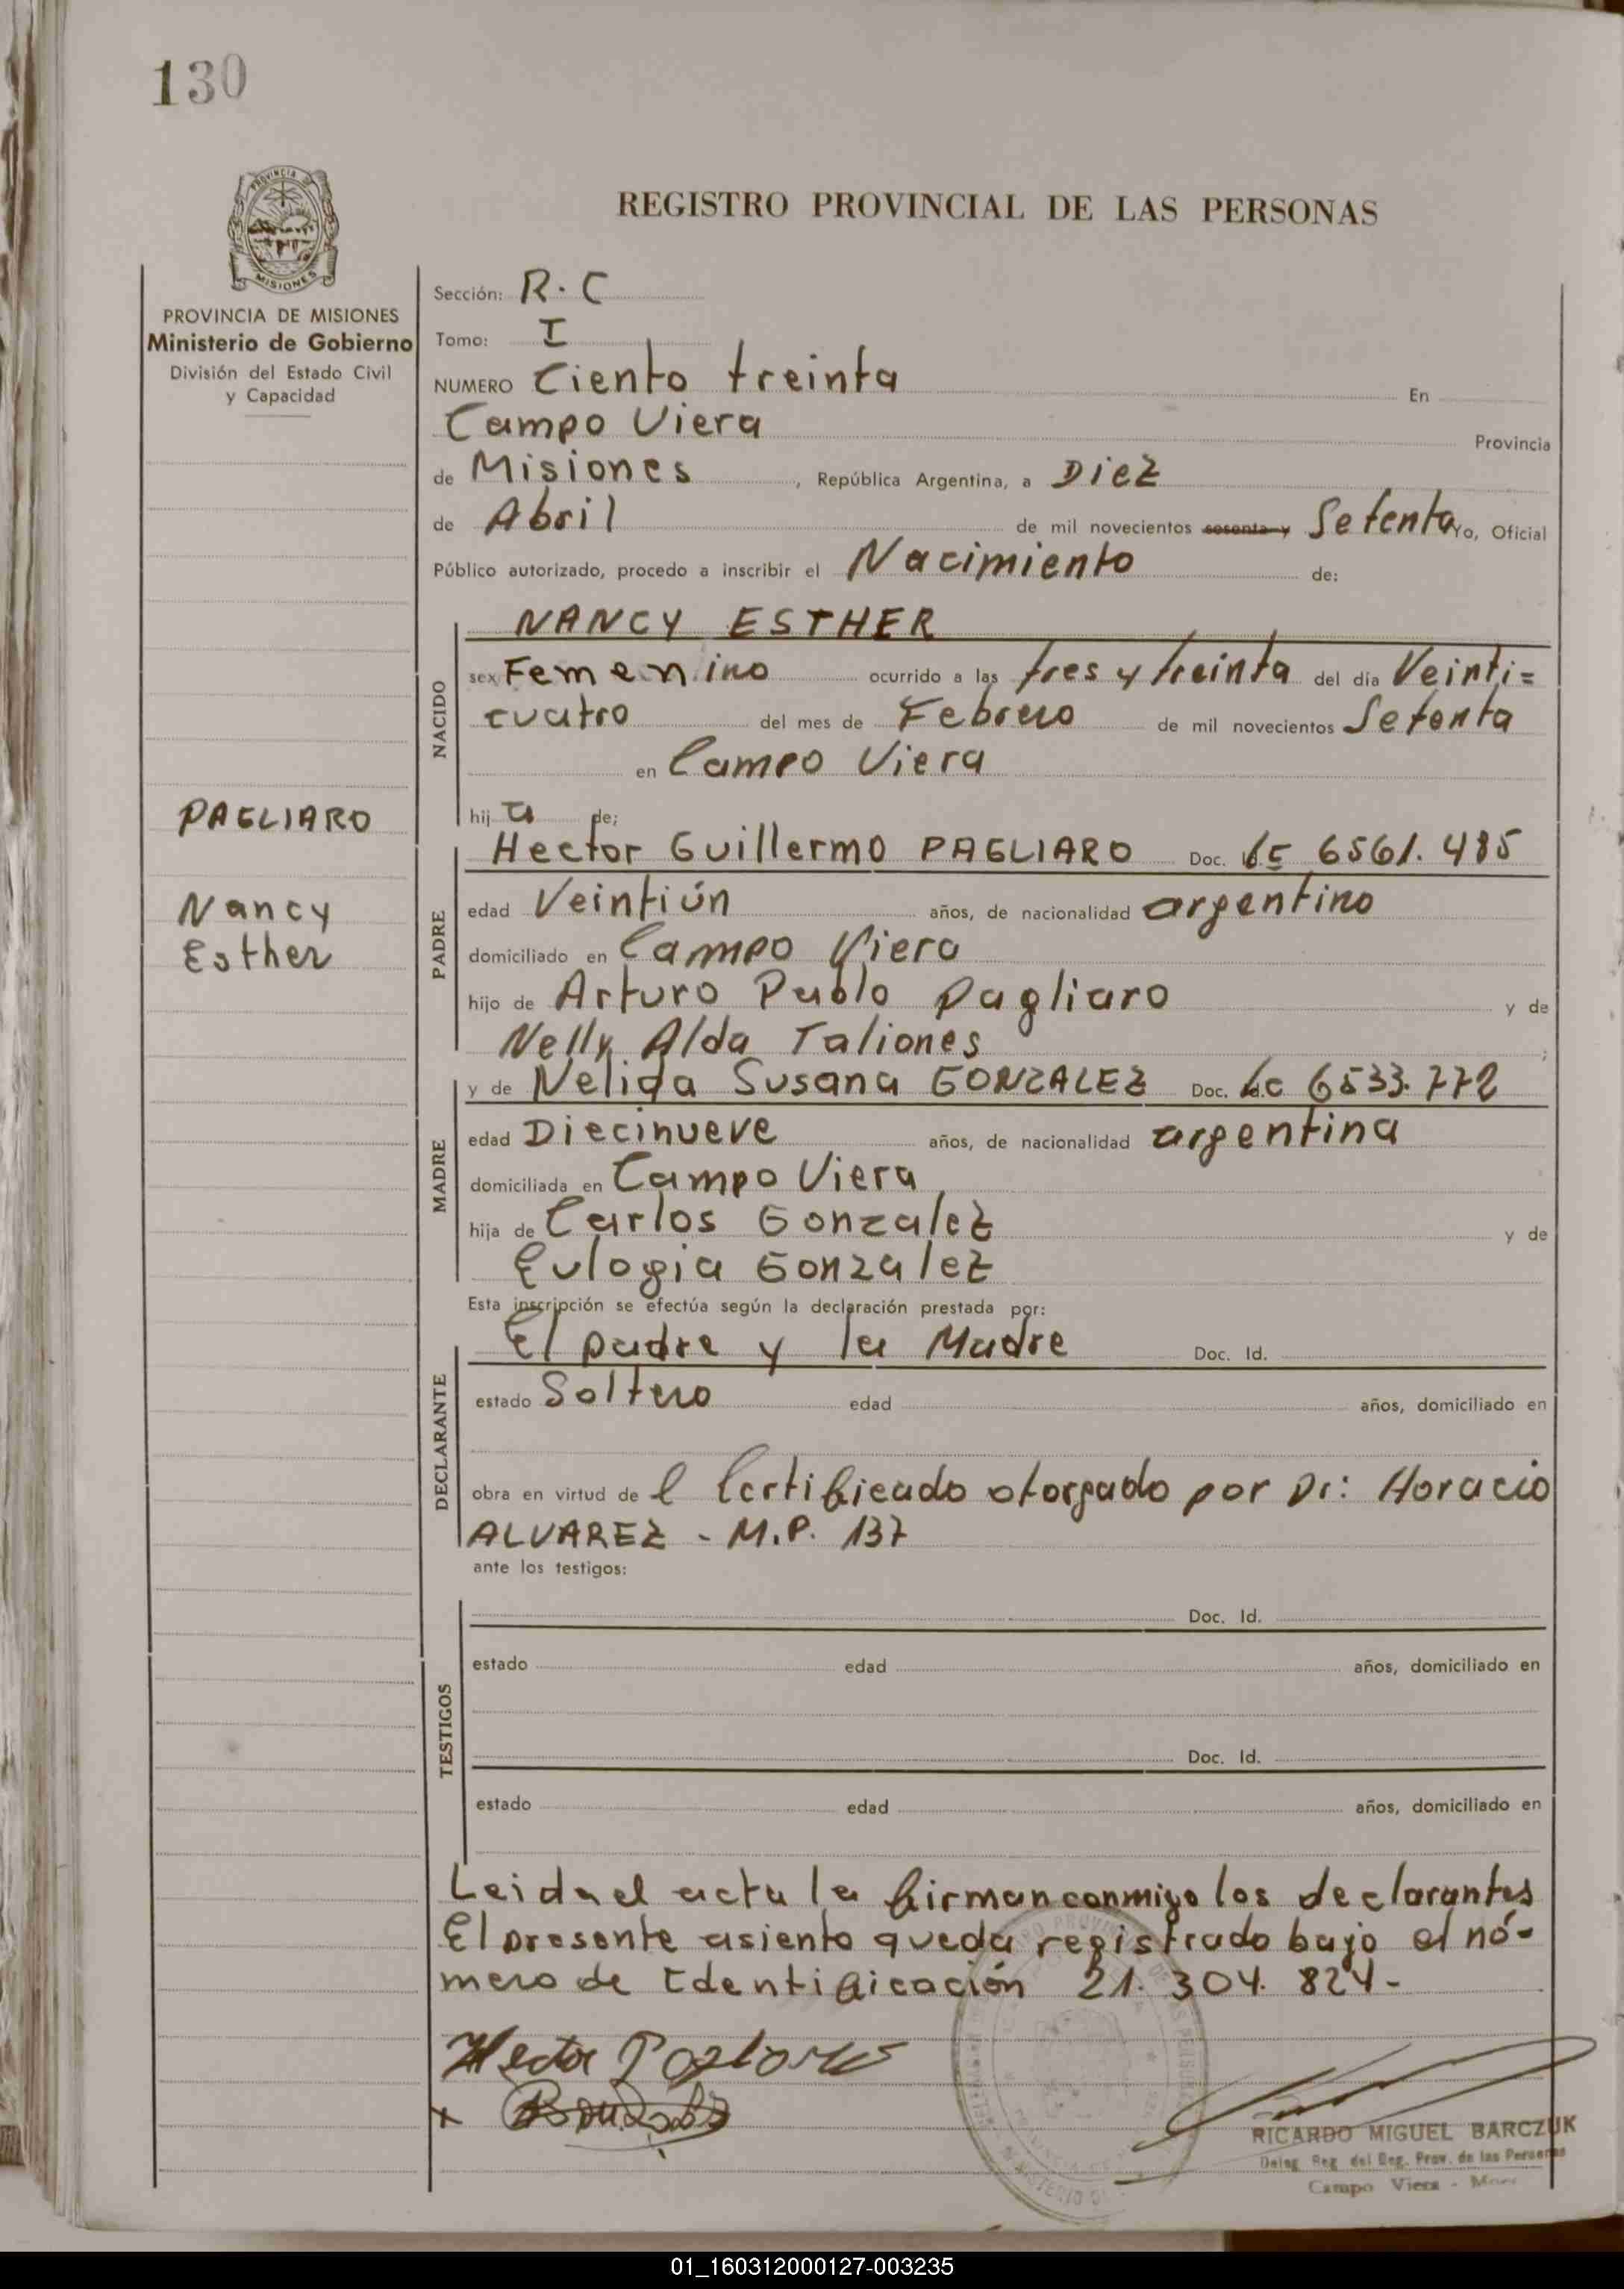 130
PROVINCIA DE
MISIONES
REGISTRO PROVINCIAL DE LAS PERSONAS
PROVINCIA DE MISIONES
Ministerio de Gobierno
División del Estado Civil
y Capacidad
PAGLIARO
Nancy
Esther
Sección: R.C
Tomo: I
NUMERO Ciento treinta En
Campo Viera Provincia
de Misiones, República Argentina, a Diez
de Abril de mil novecientos sesenta y Setenta Yo, Oficial
Público autorizado, procedo a inscribir el Nacimiento de:
NACIDO
NANCY ESTHER
sex Femenino ocurrido a las tres y treinta del día Veinti=
cuatro del mes de Febrero de mil novecientos Setenta
en Campo Viera
hija de:
PADRE
Hector Guillermo PAGLIARO Doc. 6561.485
edad Veintiún años, de nacionalidad argentino
domiciliado en Campo Viera
hijo de Arturo Pablo Pagliaro y de
Nelly Alda Taliones;
MADRE
y de Nelida Susana GONZALEZ Doc. LC 6533.772
edad Diecinueve años, de nacionalidad argentina
domiciliada en Campo Viera
hija de Carlos Gonzalez y de
Eulogia Gonzalez
Esta inscripción se efectúa según la declaración prestada por:
DECLARANTE
El padre y la Madre Doc. Id.
estado Soltero edad años, domiciliado en
obra en virtud del Certificado otorgado por Dr: Horacio
ALVAREZ - M.P. 137
ante los testigos:
TESTIGOS
Doc. Id.
estado edad años, domiciliado en
Doc. Id.
estado edad años, domiciliado en
Leida el acta la firman conmigo los declarantes
El presente asiento queda registrado bajo el nú-
mero de Identificación 21.304.824-
Hector Pagliaro
x
RICARDO MIGUEL BARCZUK
Deleg. Reg. del Reg. Prov. de las Personas
Campo Viera - Mnes
01_160312000127-003235